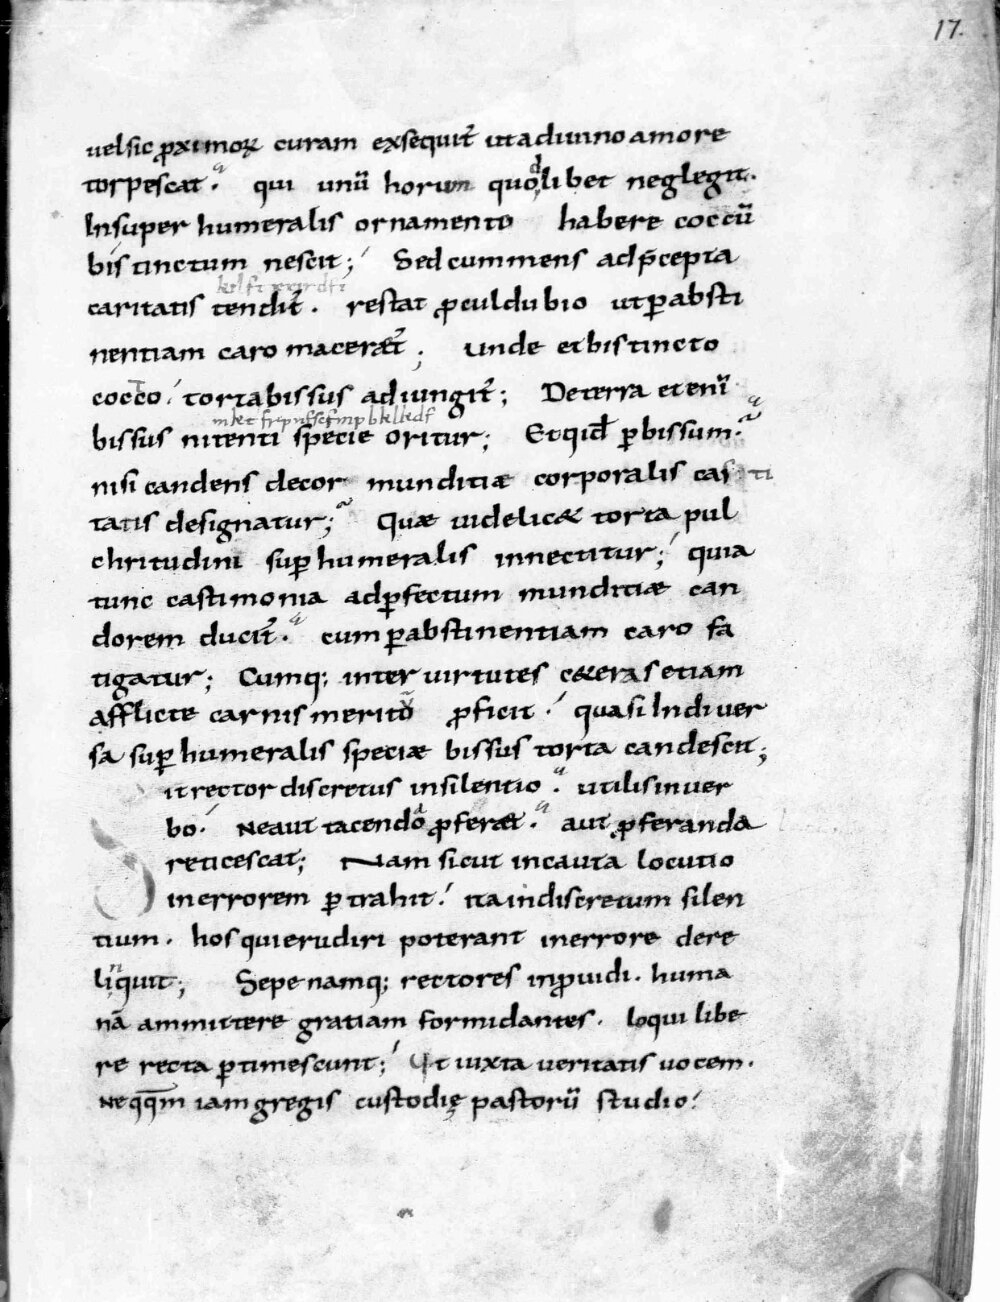 17.
uelsic ꝓximoꝝ curam exsequit̃ utadiuino amore
torpescat. qui unū horum quodlibet neglegit.
Insuper humeralis ornamento habere coccū
bis tinctum nescit; Sed cum mens ad p̄cepta
caritatis tendit̃. restat ꝓculdubio ut ꝑabsti
nentiam caro maceret̃; unde et bis tincto
cocco tortabissus adiungit̃; De terra etenī
bissus nitenti specie oritur; Et quid ꝑ bissum.
nisi candens decor munditiæ corporalis cas ti
tatis designatur; Quæ uidelic& torta pul
chritudini suꝑhumeralis innectitur; quia
tunc castimonia adꝑfectum munditiæ can
dorem ducit̃. cum ꝑabstinentiam caro fa
tigatur; Cumq; inter uirtutes c&eras etiam
afflicte carnis meritū ꝓficit. quasi In diuer
sa suꝑhumeralis speciæ bissus torta candescit;
it rector discretus insilentio. utilis in uer
bo. Ne aut tacenda ꝓferat. aut ꝓferanda
reticescat; Nam sicut incauta locutio
in errorem ꝑtrahit. ita indiscretum silen
tium. hos qui erudiri poterant in errore dere
linquit; Sepe namq; rectores inꝓuidi. huma
nā ammittere gratiam formidantes. loqui libe
re recta ꝑtimescunt; Et iuxta ueritatis uocem.
Ne qq̄m iam gregis custodię pastorū studio.